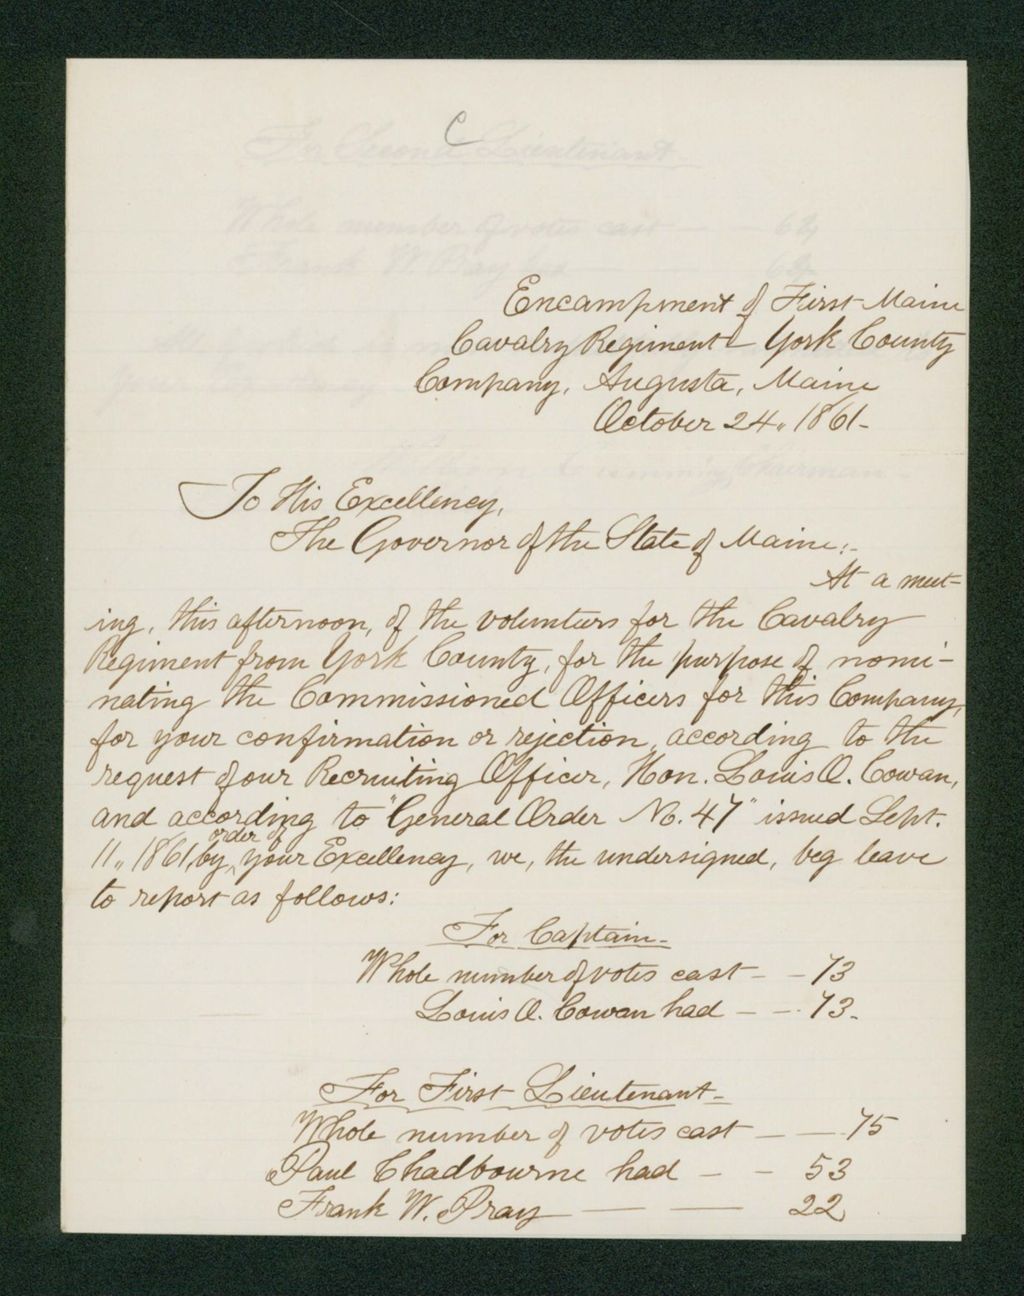 C
Encampment of First Maine
Cavalry Regiment York County
Company, Augusta, Maine
October 24, 1861-
To His Excellency,
The Governor of the State of Maine:-
At a meet-
ing, this afternoon, of the volunteers for the Cavalry
Regiment from York County, for the purpose of nomi-
nating the Commissioned Officers for this Company,
for your confirmation or rejection, according to the
request of our Recruiting Officer, Hon. Louis O. Cowan,
and according to "General Order No. 47" issued Sept.
11, 1861, by order of your Excellency, we, the undersigned, beg leave
to report as follows:
For Captain-
Whole number of votes cast - - 73
Louis O. Cowan had - - 73.
For First Lieutenant-
Whole number of votes cast - - 75
Paul Chadbourne had - - 53
Frank W. Pray - - 22